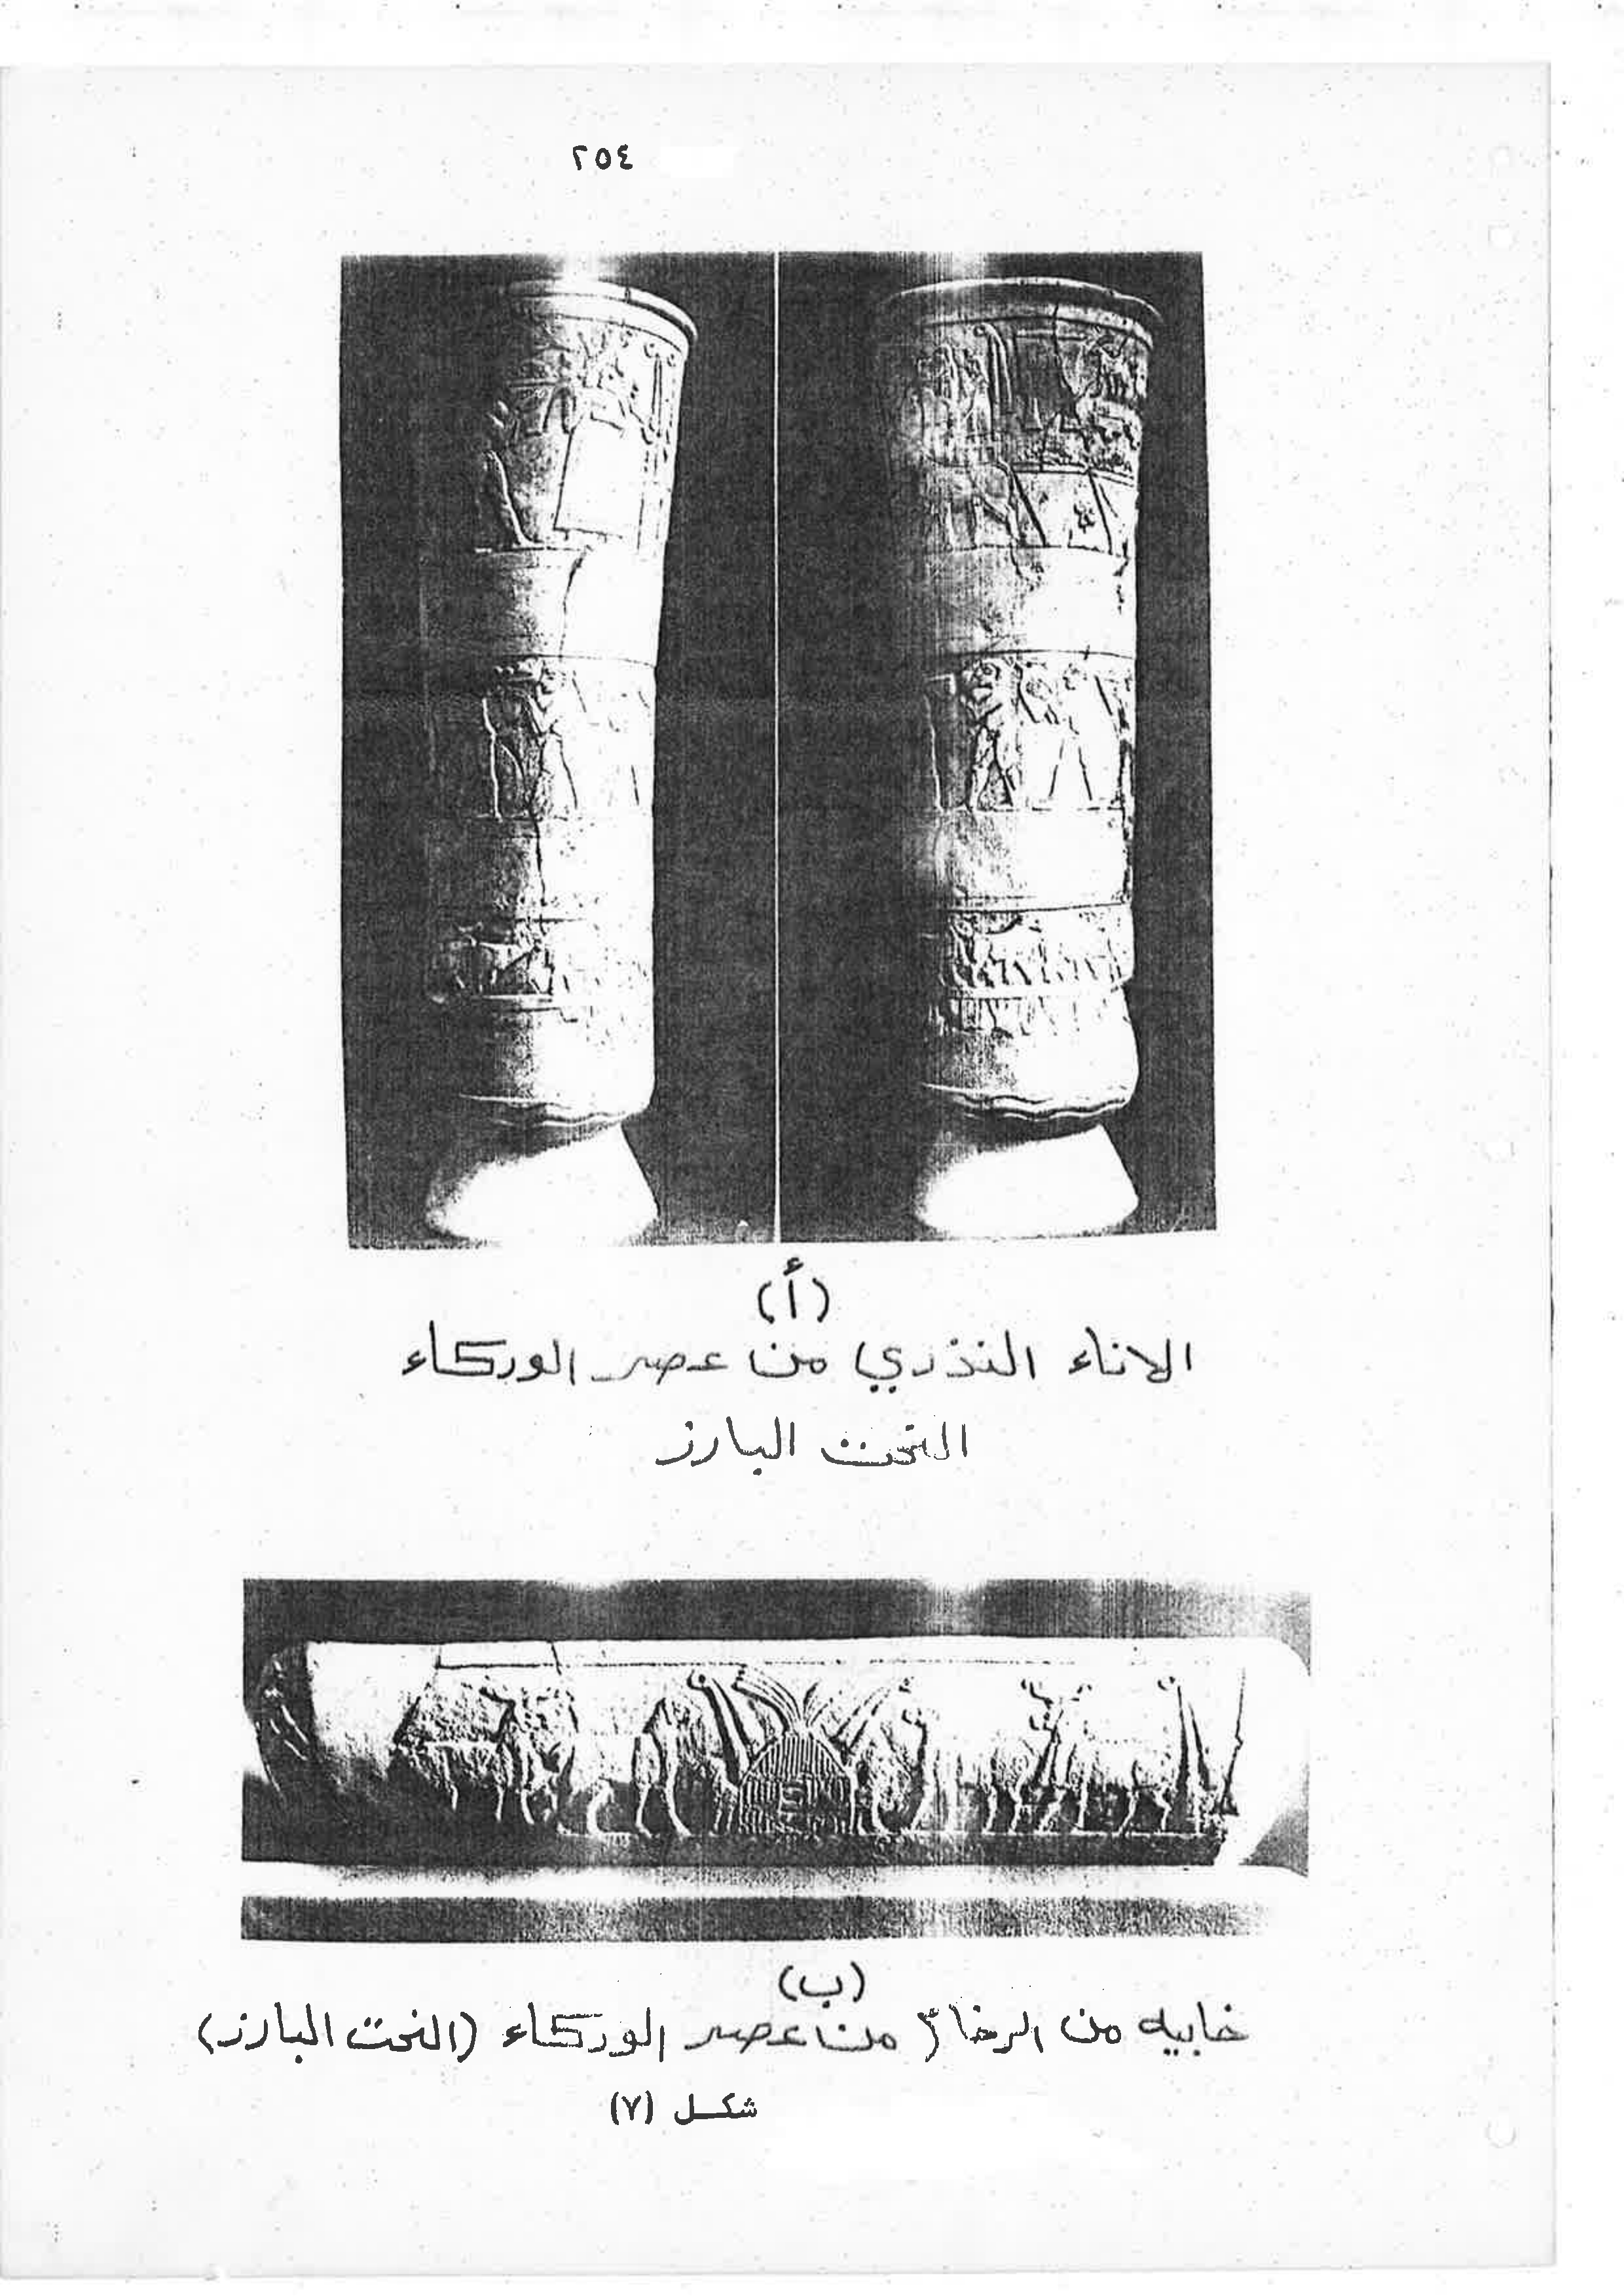 ٢٥٤
(أ)
الاناء النذري من عصر الوركاء
النحت البارز
(ب)
خابيه من الرخام من عصر الوركاء (النحت البارز)
شكل (٧)